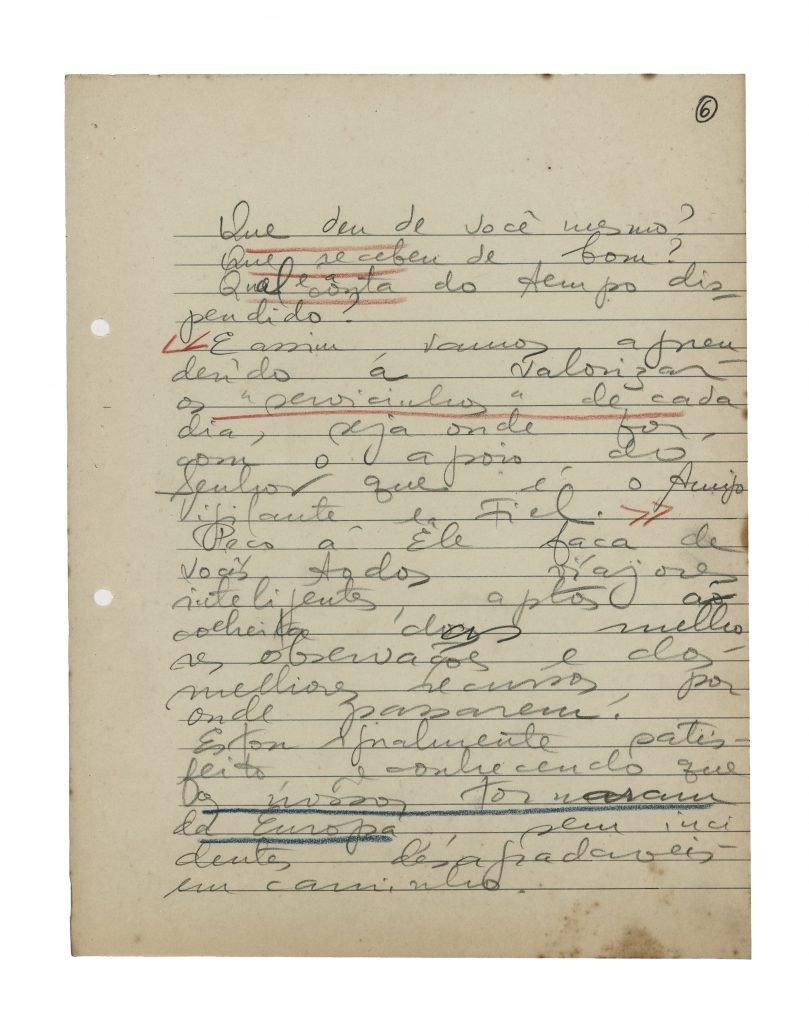 6
Que deu de você mesmo?
Que recebeu de bom?
Qual é a conta do tempo dis-
pendido?
E assim vamos apren
dendo á valorizar
os "servicinhos" de cada
dia, seja onde for,
com o apoio do
Senhor que é o Amigo
Vigilante e Fiel.
Peço a Êle faça de
vocês todos viajores
inteligentes, aptos aõ
colheita das melho
res observações e dos
melhores recursos, por
onde passarem.
Estou igualmente satis-
feito reconhecendo que
os nossos tornaram
da Europa, sem inci
dentes desagradaveis
em caminho.